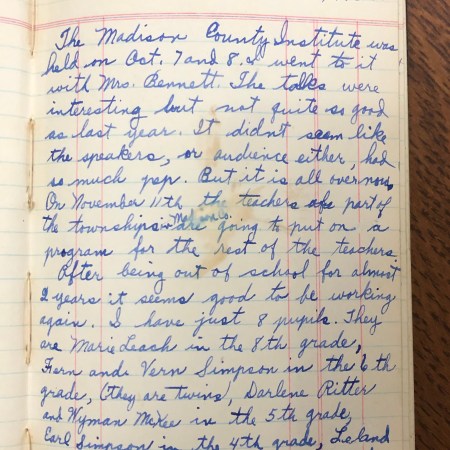 The Madison County Institute was
held on Oct. 7 and 8. I went to it
with Mrs. Bennett. The talks were
interesting but not quite so good
as last year. It didn't seem like
the speakers, or audience either, had
so much pep. But it is all over now.
On November 11th the teachers of a part of
the townships in Mad. Co. are going to put on a
program for the rest of the teachers.
After being out of school for almost
2 years it seems good to be working
again. I have just 8 pupils. They
are Marie Leach in the 8th grade,
Fern and Vern Simpson in the 6th
grade, (they are twins), Darlene Ritter
and Wyman McKee in the 5th grade,
Earl Simpson in the 4th grade, Leland